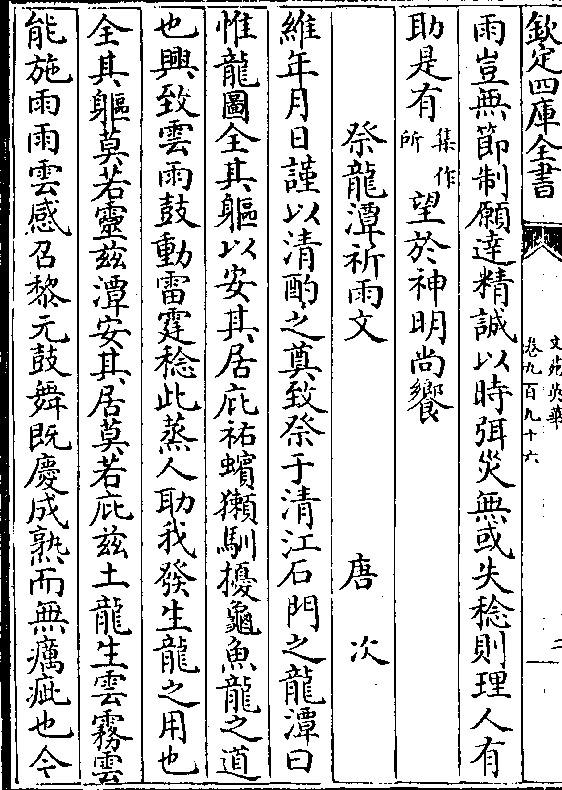 欽定四庫全書
文苑英華
卷九百九十六
二
雨豈無節制願達精誠以時弭災無或失稔則理人有
助是有集作所望於神明尚饗
祭龍潭祈雨文
唐次
維年月日謹以清酌之奠致祭于清江石門之龍潭曰
惟龍圖全其軀以安其居庇祐蠙獺馴擾龜魚龍之道
也興致雲雨鼓動雷霆稔此蒸人助我發生龍之用也
全其軀莫若靈兹潭安其居莫若庇兹土龍生雲霧雲
能施雨雨雲感召黎元鼓舞既慶成熟而無癘疵也今